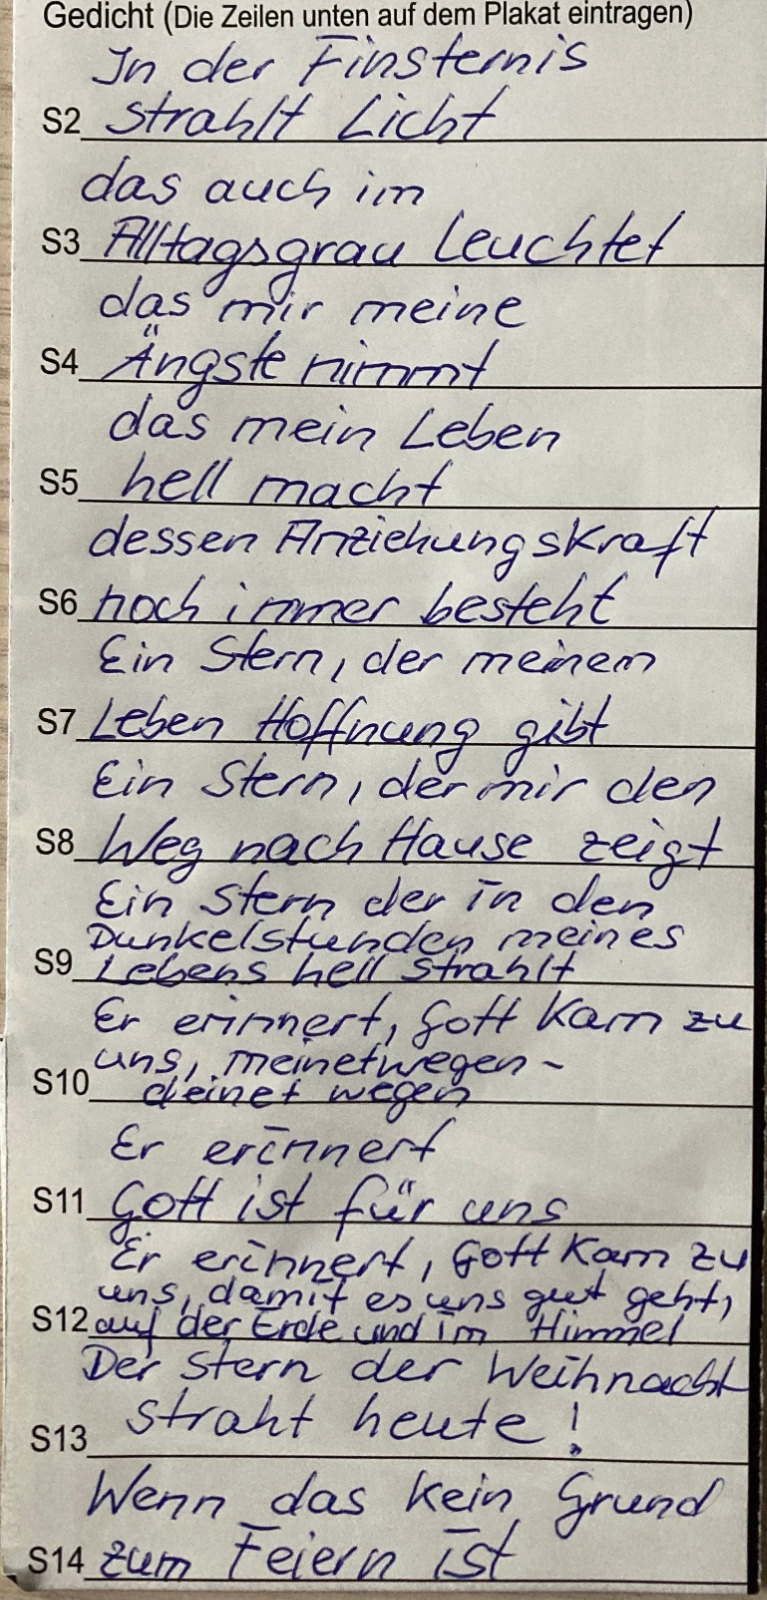 Gedicht (Die Zeilen unten auf dem Plakat eintragen)
In der Finsternis
S2 strahlt Licht
das auch im
S3 Alltagsgrau leuchtet
das mir meine
S4 Ängste nimmt
das mein Leben
S5 hell macht
dessen Anziehungskraft
S6 noch immer besteht
Ein Stern, der meinem
S7 Leben Hoffnung gibt
Ein Stern, der mir den
S8 Weg nach Hause zeigt
Ein Stern der in den
Dunkelstunden meines
S9 Lebens hell strahlt
Er erinnert, Gott kam zu
uns, meinetwegen -
S10 deinet wegen
Er erinnert
S11 Gott ist für uns
Er erinnert, Gott kam zu
uns, damit es uns gut geht,
S12 auf der Erde und im Himmel
Der Stern der Weihnacht
S13 straht heute!
Wenn das kein Grund
S14 zum Feiern ist